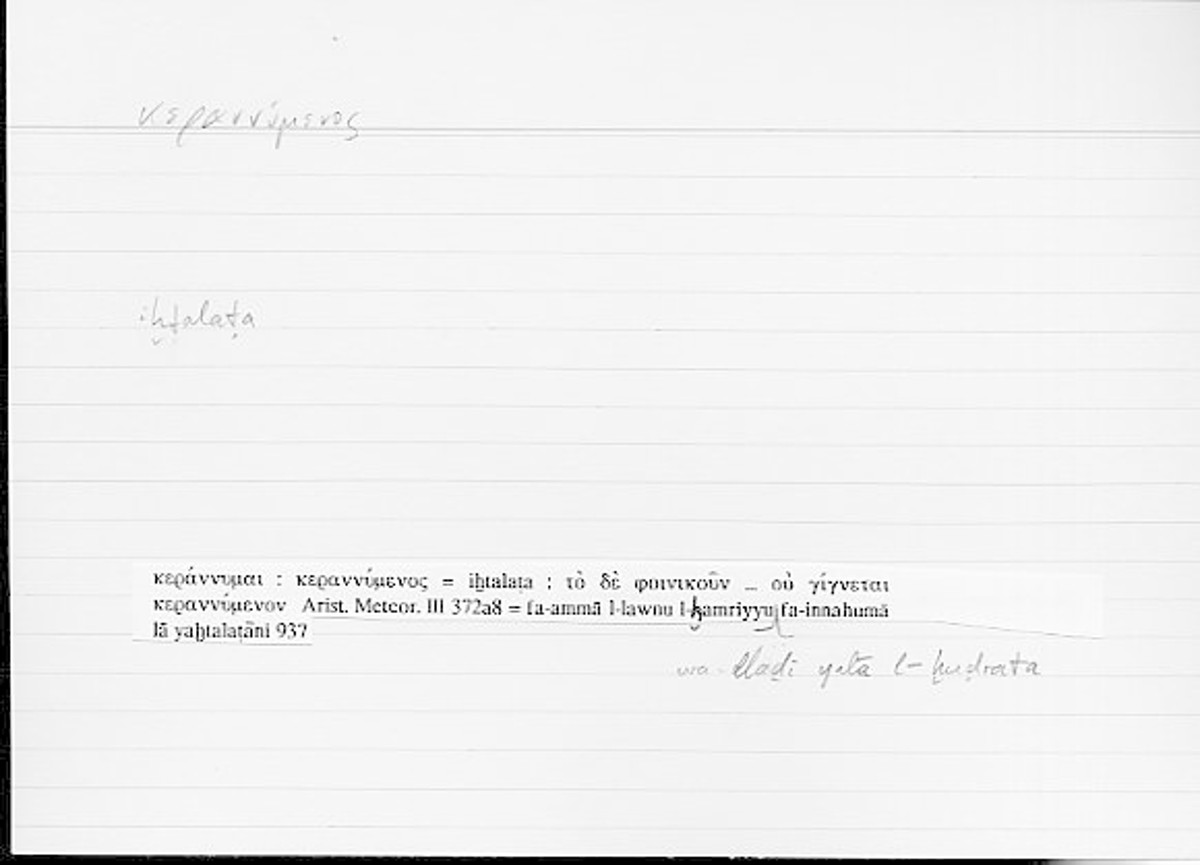 κεραννύμενος
iḫtalaṭa
κεράννυμαι : κεραννύμενος = iḫtalaṭa : τὸ δὲ φοινικοῦν ... οὐ γίγνεται
κεραννύμενον Arist. Meteor. III 372a8 = fa-ammā l-lawnu l-ḫamriyyu fa-innahumā
lā yaḫtalaṭāni 937
wa-lladī yalā l-ḫuḍrata